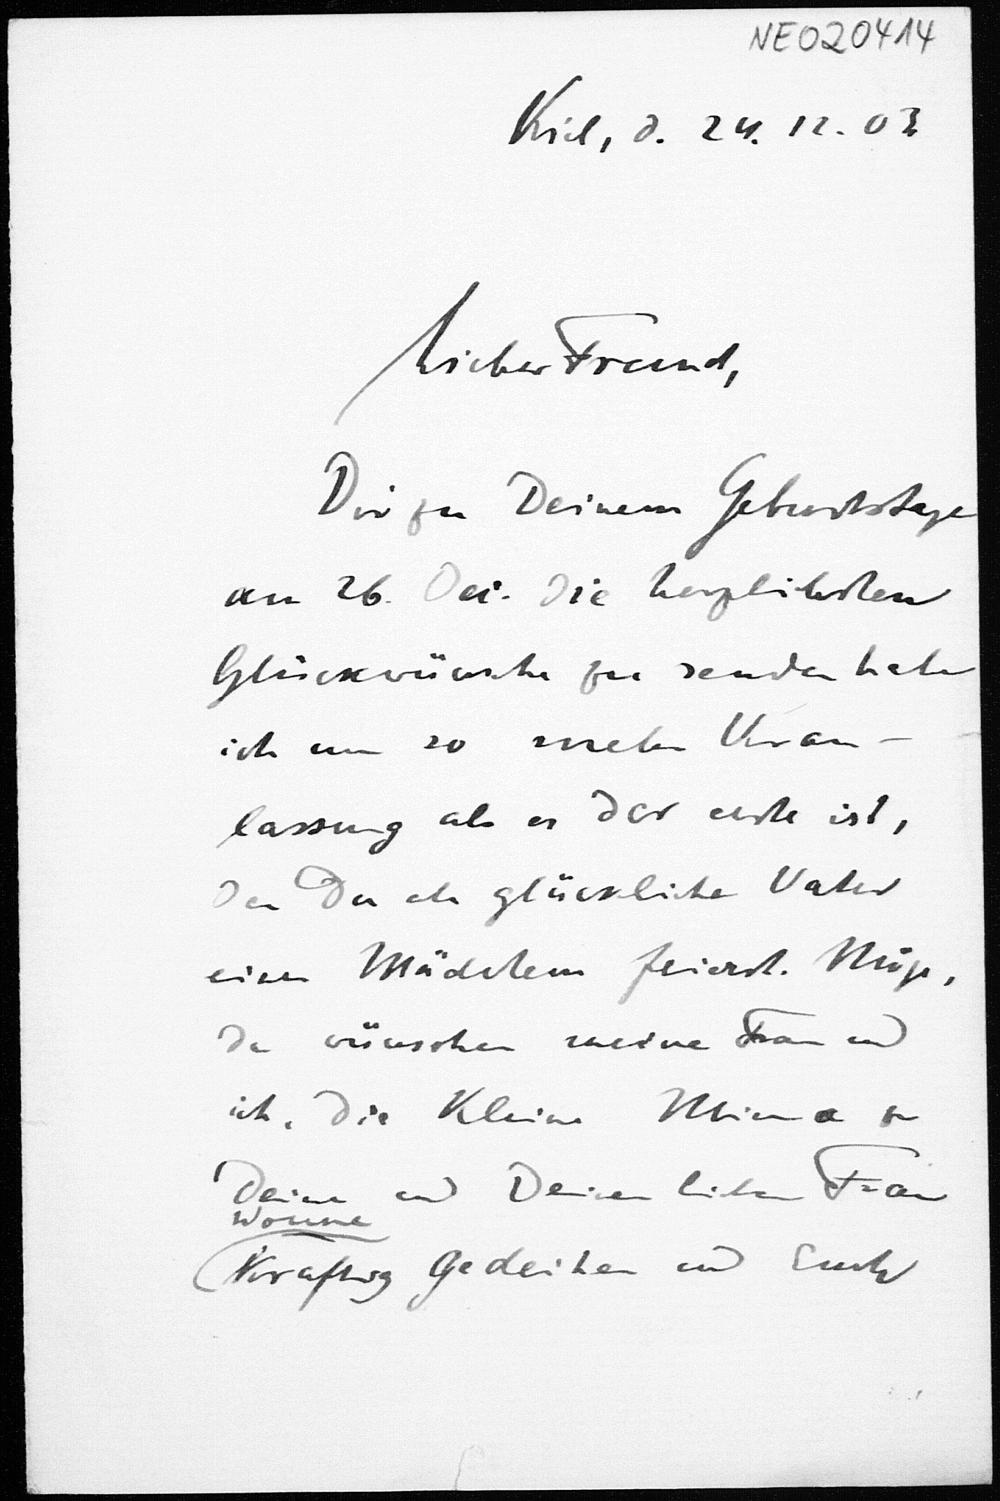 NE020414
Kiel, d. 24. 12. 03
Lieber Freund,
Dir zu Deinem Geburtstage
am 26. Dez. die herzlichsten
Glückwünsche zu senden habe
ich um so mehr Veran-
lassung als es der erste ist,
den Du als glücklicher Vater
eines Mädchens feierst. Möge,
da wünschen meine Frau und
ich, die Kleine Mima zu
Deiner und Deiner lieben Frau
Wonne
kräftig gedeihen und Euch